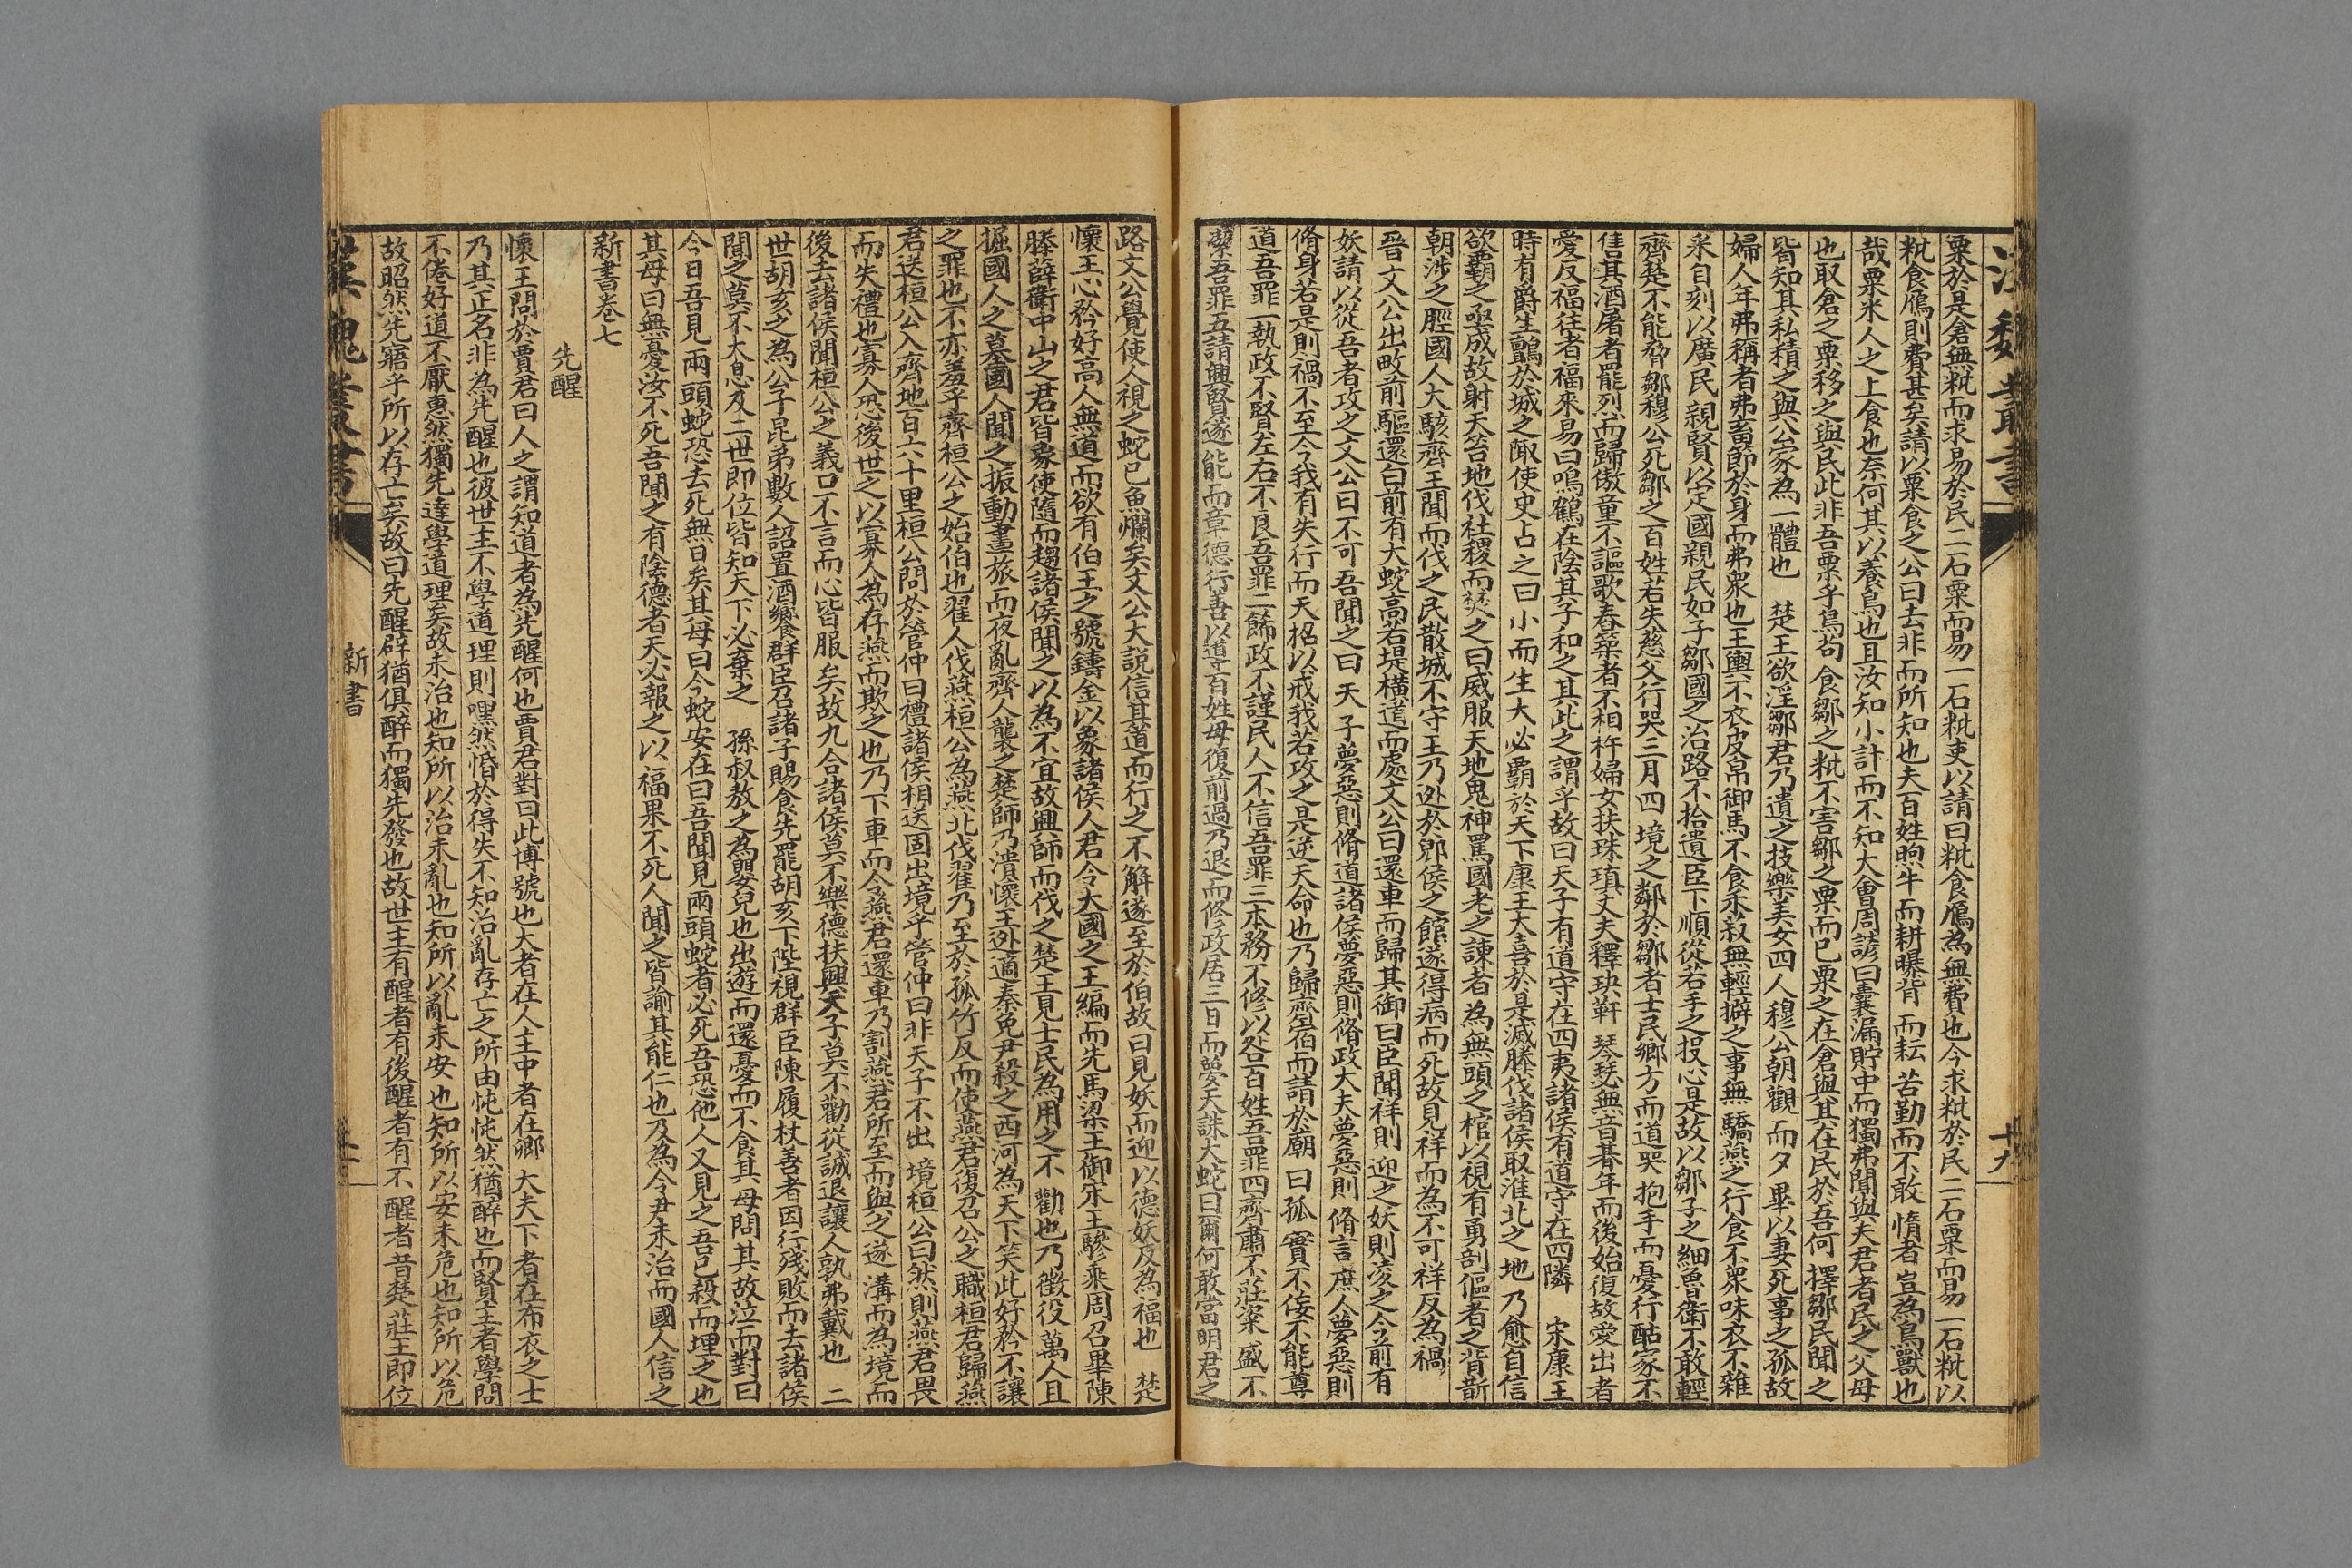 粟於是倉無粃而求易於民二石粟而易一石粃吏以請曰粃食鴈為無費也今求粃於民二石粟而易一石粃以
粃食鴈則費甚矣請以粟食之公曰去非而所知也夫百姓煦牛而耕曝背而耘苦勤而不敢惰者豈為鳥獸也
哉粟米人之上食也奈何其以養鳥也且汝知小計而不知大會周諺曰囊漏貯中而獨弗聞與夫君者民之父母
也取倉之粟移之與民此非吾粟乎鳥苟食鄒之粃不害鄒之粟而已粟之在倉與其在民於吾何擇鄒民聞之
皆知其私積之與公家為一體也　楚王欲淫鄒君乃遺之技樂美女四人穆公朝觀而夕畢以妻死事之孤故
婦人年弗稱者弗畜節於身而弗衆也王輿不衣皮帛御馬不食禾菽無輕擗之事無驕燕之行食不衆味衣不雜
采自刻以廣民親賢以定國親民如子鄒國之治路不拾遺臣下順從若手之投心是故以鄒子之細魯衛不敢輕
齊楚不能脅鄒穆公死鄒之百姓若失慈父行哭三月四境之鄰於鄒者士民鄉方而道哭抱手而憂行酤家不
隹其酒屠者罷烈而歸傲童不謳歌舂築者不相杵婦女抉珠瑱丈夫釋玦靬琴瑟無音朞年而後始復故愛出者
愛反福往者福來易曰鳴鶴在陰其子和之其此之謂乎故曰天子有道守在四夷諸侯有道守在四隣　宋康王
時有爵生鸇於城之陬使史占之曰小而生大必霸於天下康王大喜於是滅滕伐諸侯取淮北之地乃愈自信
欲霸之亟成故射天笞地伐社稷而焚之曰威服天地鬼神罵國老之諫者為無頭之棺以視有勇剖傴者之背斮
朝涉之脛國人大駭齊王聞而伐之民散城不守王乃迯於郳侯之館遂得病而死故見祥而為不可祥反為禍
晉文公出畋前驅還白前有大蛇高若堤橫道而處文公曰還車而歸其御曰臣聞祥則迎之妖則凌之今前有
妖請以從吾者攻之文公曰不可吾聞之曰天子夢惡則脩道諸侯夢惡則脩政大夫夢惡則脩言庶人夢惡則
脩身若是則禍不至今我有失行而天招以戒我若攻之是逆天命也乃歸齊宿而請於廟曰孤實不佞不能尊
道吾罪一執政不賢左右不良吾罪二飾政不謹民人不信吾罪三本務不修以咎百姓吾罪四齊肅不莊粢盛不
潔吾罪五請興賢遂能而章德行善以導百姓毋復前過乃退而修政居三日而夢天誅大蛇曰爾何敢當明君之
路文公覺使人視之蛇已魚爛矣文公大說信其道而行之不解遂至於伯故曰見妖而迎以德妖反為福也　楚
懷王心矜好高人無道而欲有伯王之號鑄金以象諸侯人君令大國之王編而先馬梁王御宋王驂乘周召畢陳
滕薛衛中山之君皆象使隨而趨諸侯聞之以為不宜故興師而伐之楚王見士民為用之不勸也乃徵役萬人且
掘國人之墓國人聞之振動晝旅而夜亂齊人襲之楚師乃潰懷王迯適秦免尹殺之西河為天下笑此好矜不讓
之罪也不亦羞乎齊桓公之始伯也翟人伐燕桓公為燕北伐翟乃至於孤竹反而使燕君復召公之職桓君歸燕
君送桓公入齊地百六十里桓公問於管仲曰禮諸侯相送固出境乎管仲曰非天子不出境桓公曰然則燕君畏
而失禮也寡人恐後世之以寡人為存燕而欺之也乃下車而令燕君還車乃割燕君所至而與之遂溝而為境而
後去諸侯聞桓公之義口不言而心皆服矣故九合諸侯莫不樂德扶興天子莫不勸從誠退讓人孰弗戴也　二
世胡亥之為公子昆弟數人詔置酒饗群臣召諸子賜食先罷胡亥下陛視群臣陳履杖善者因行殘敗而去諸侯
聞之莫不大息及二世即位皆知天下必棄之　孫叔敖之為嬰兒也出遊而還憂而不食其母問其故泣而對曰
今日吾見兩頭蛇恐去死無日矣其母曰今蛇安在曰吾聞見兩頭蛇者必死吾恐他人又見之吾已殺而埋之也
其母曰無憂汝不死吾聞之有陰德者天必報之以福果不死人聞之皆諭其能仁也及為令尹未治而國人信之
新書卷七
先醒
懷王問於賈君曰人之謂知道者為先醒何也賈君對曰此博號也大者在人主中者在鄉大夫下者在布衣之士
乃其正名非為先醒也彼世主不學道理則嘿然惛於得失不知治亂存亡之所由忳忳然猶醉也而賢主者學問
不倦好道不厭惠然獨先達學道理矣故未治也知所以治未亂也知所以亂未安也知所以安未危也知所以危
故昭然先寤乎所以存亡矣故曰先醒辟猶俱醉而獨先發也故世主有醒者有後醒者有不醒者昔楚莊王即位
新書